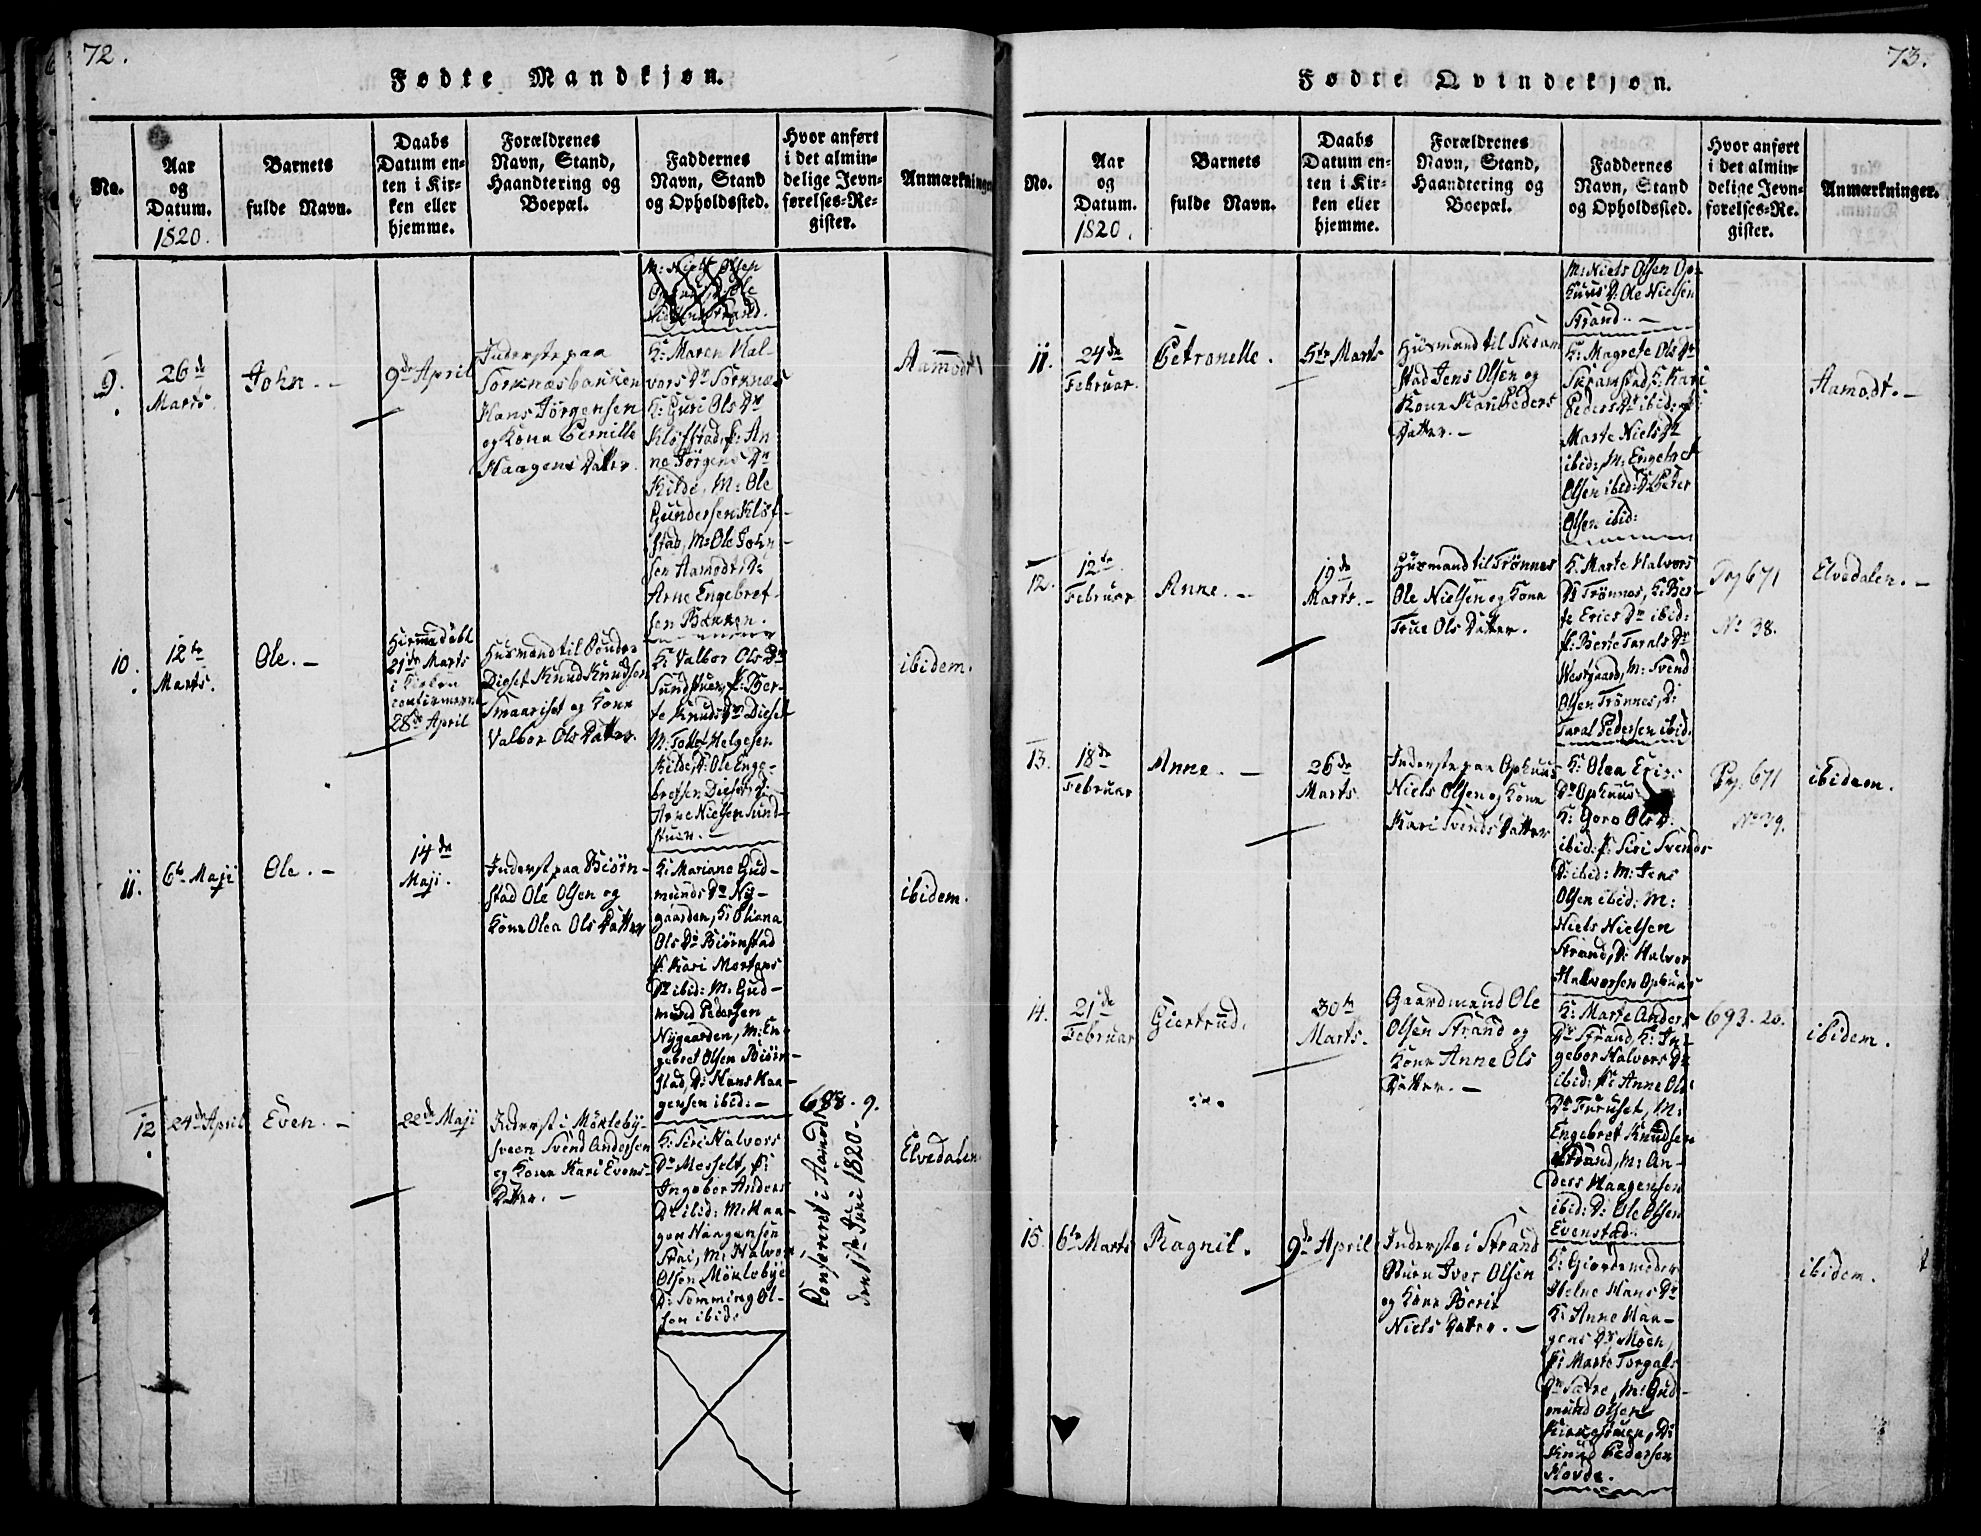 72.
Fødte Mandkjøn.
No.
Aar
og
Datum.
1820.
Barnets
fulde Navn.
Daabs
Datum en-
ten i Kir-
ken eller
hjemme.
Forældrenes
Navn, Stand,
Haandtering og
Boepæl.
Faddernes
Navn, Stand
og Opholdssted.
Hvor anført
i det almin-
delige Jevn-
førelses-Re-
gister.
Anmærkninger
M: Niels Olsen
Ole
9.
26de
Marts.
John. -
9de April
Inderste paa
Sorknæsbanken
Hans Jørgensen
og Kone Pernille
Haagens Datter.
K: Maren Hal-
vors Dr Sorknæs
K: Guri Ols Dr
Kløfstad, P: An
ne Jørgens Dr
Kilde, M: Ole
Gundersen Kløf-
stad, M: Ole John
sen Aamodt D:
Arne Engebret-
sen Banken.
Aamodt
10.
12te
Marts.
Ole. -
Hiemmedøbt
21de Marts
i Kirken
confirmeret
28de April
Husmand til
Dieset Knud Knudsen
og Kone
Valbor Ols Datter.
K: Valbor Ols Dr
Sundstuen, P: Ber-
te Knuds Dr Dieset
M: Helgesen
Kilde, D: Ole Enge-
bretsen Dieset D:
Arne Nielsen Sund-
stuen. -
ibidem.
11.
6te Maji
Ole. -
14de
Maji.
Inderst paa Biørn-
stad Ole Olsen og
Kone Olea Ols Datter
K: Mariane Gud-
munds Dr Ny-
gaarden, K: Oliana
Ols Dr Biørnstad
P: Kari Mortens
Dr ibid: M: Gud-
mund Pedersen
Nygaarden, M: En-
gebret Olsen Biørn-
stad, D: Hans Haa-
gensen ibid: -
ibidem.
12
24de April
Even. -
22de Maji
Inderst i Møkleby-
sveen Svend Andersen
og Kone Kari Evens-
Datter. -
K: Siri Halvors
Dr Messelt, P:
Ingebor Anders
Dr ibid: M: Haa-
gen Haagensen
Strai, M: Halvor
Olsen Møklebye
D: Somming Ol-
sen ibid:
688. 9.
Confereret i Aamodt
den 1ste Juni 1820.
Elvedalen
73.
Fødte Qvindekjøn.
No.
Aar
og
Datum.
1820.
Barnets
fulde Navn.
Daabs
Datum en-
ten i Kir-
ken eller
hjemme.
Forældrenes
Navn, Stand,
Haandtering og
Boepæl.
Faddernes
Navn, Stand
og Opholdssted.
Hvor anført
i det almin-
delige Jevn-
førelses-Re.
gister.
Anmærkninger.
M: Niels Olsen Op-
huus D: Ole Nielsen
Strand. -
11.
24de
Februar.
Petronelle.
5te Marts
Husmand til Skram
stad Jens Olsen og
Kone Kari Peders
Datter. -
K: Magrete Ols Dr
Skramstad, K: Kari
Peders Dr ibid: P:
Marte Niels Dr
ibid: M: Engebret
Olsen ibid: D: Peter
Olsen ibid:
Aamodt. -
12.
12te
Februar
Anne. -
19de
Marts. -
Husmand til Trønnes
Ole Nielsen og Kone
True Ols Datter.
K: Marte Halvors
Dr Trønnes, K: Ber-
te Erics Dr ibid:
P: Berte Tarals Dr
Westgaard, M: Svend
Olsen Trønnes, D:
Taral Pedersen ibid.
Pag 671
No 38.
Elvedalen. -
13.
18de
Februar
Anne. -
26de
Marts.
Inderste paa Ophuus
Niels Olsen og Kone
Kari Svends Datter
K: Olea Erics
Dr Ophuus
K: Goro Ols D:
ibid: P: Siri Svends
D: ibid: M: Jens
Olsen ibid: M:
Niels Nielsen
Strand, D: Halvor
Halvorsen Ophuus
Pag. 671
No 39.
ibidem.
14.
21de
Februar
Giertrud.
30te
Marts.
Gaardmand Ole
Olsen Strand og
Kone Anne Ols
Datter. -
K: Marte Anders
Dr Strand, K: In-
gebor Halvors Dr
ibid: P: Anne Ols
Dr Furuset, M:
Engebret Knudsen
Strand, M: An-
ders Haagensen
ibid: D: Ole Olsen
Evenstad.
693. 20.
ibidem.
15.
6te Marts
Ragnil.
9de April
Inderste i Strand
Stuen Iver Olsen
og Kone Berit
Niels Datter. -
K: Giordemoder
Helne Hans Dr
K: Anne Haa-
gens Dr Moen,
P: Marte Torgals
Dr Sætre, M: Gud-
mund Olsen
D:
Knud Pedersen
Hovde.
ibidem.